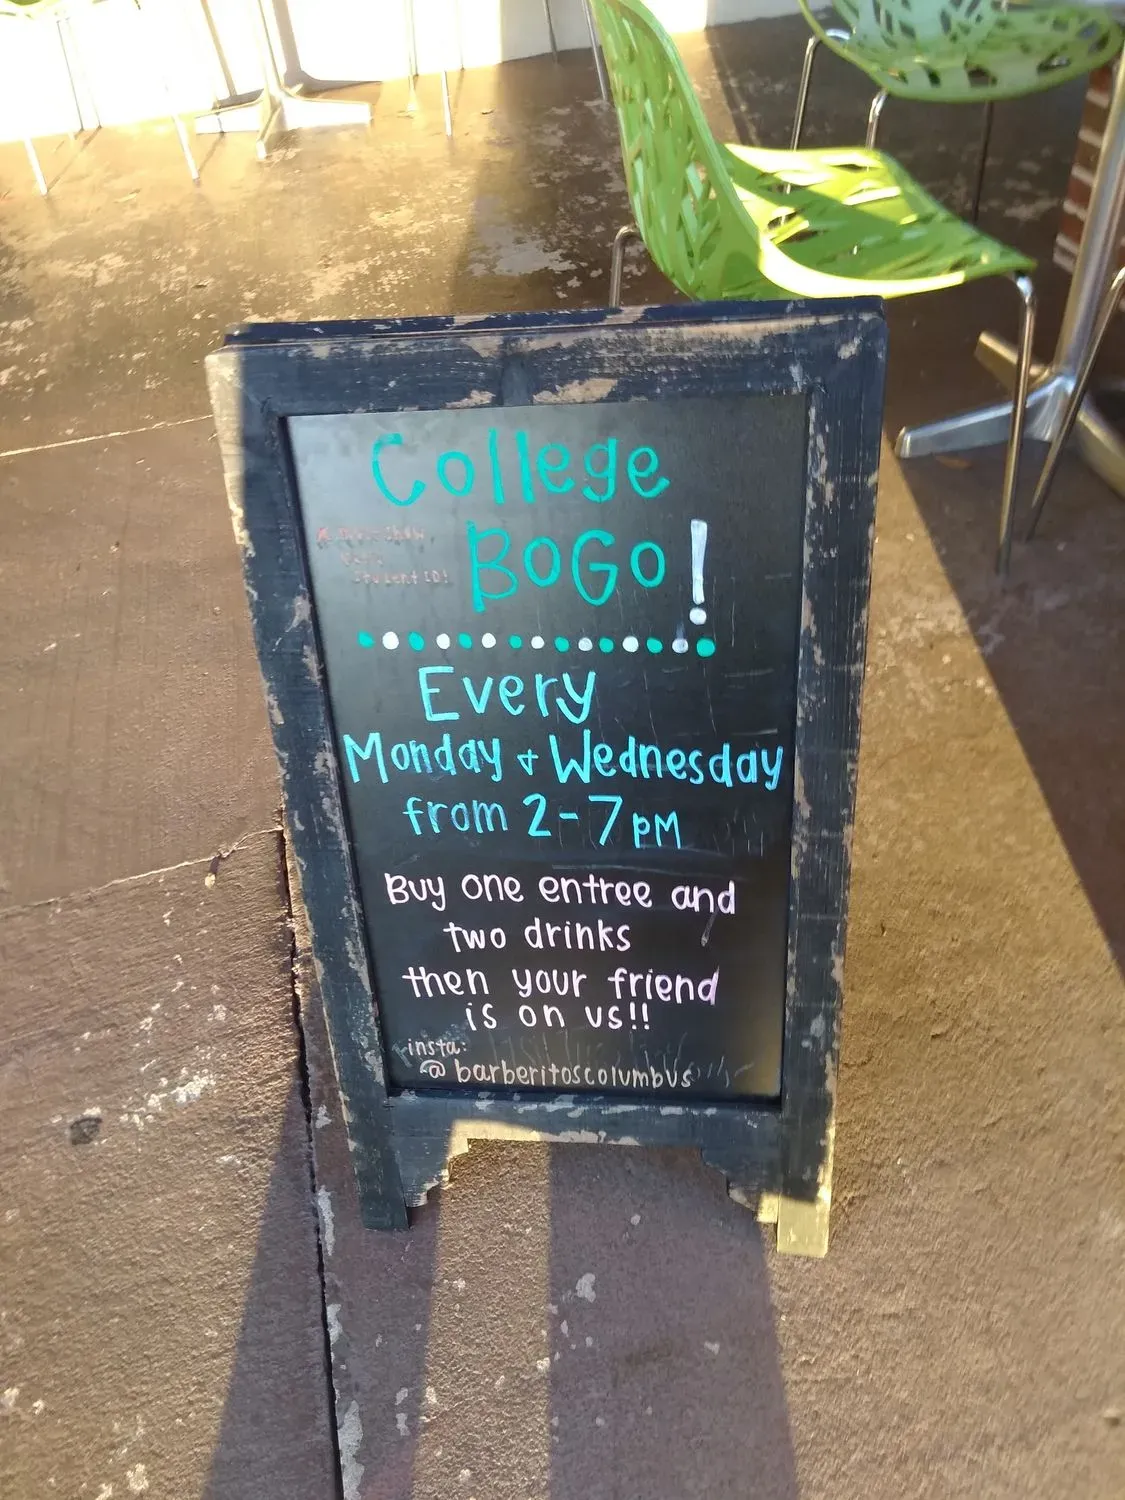 College
BOGO!
* must show
your
student ID!
Every
Monday + Wednesday
from 2-7pm
Buy one entree and
two drinks
then your friend
is on us!!
insta:
@barberitoscolumbus